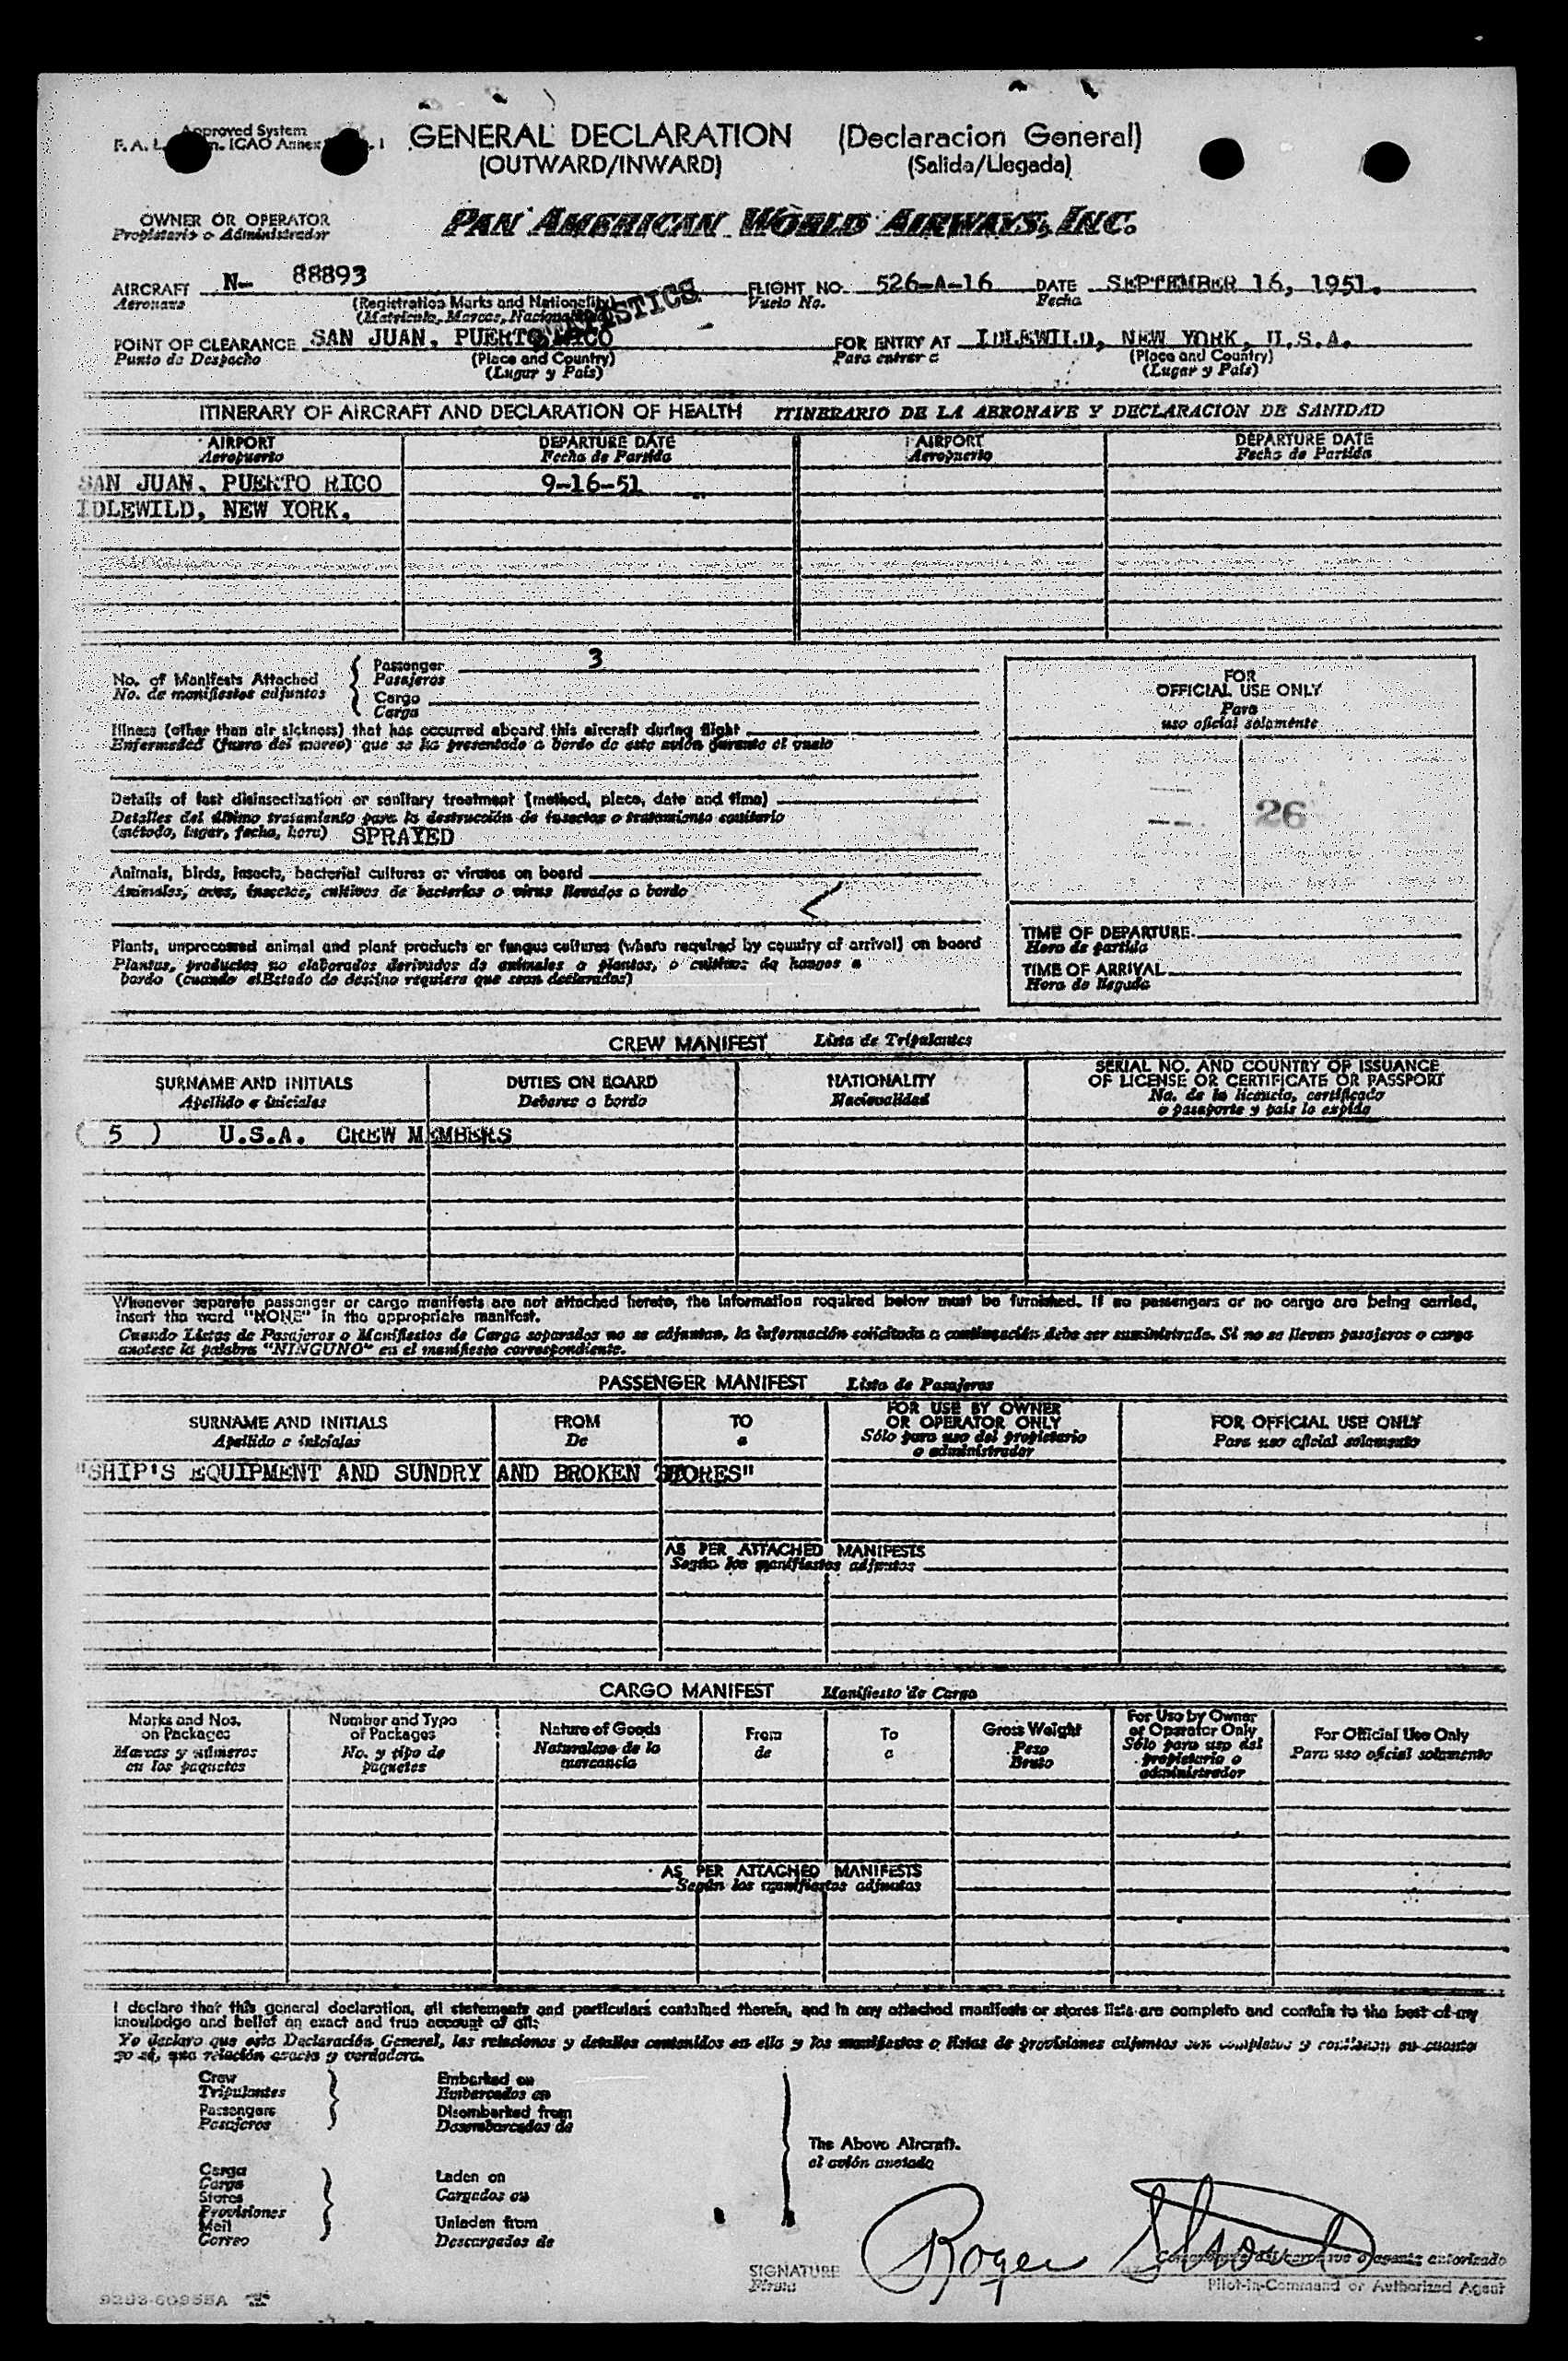 Approved System
F. A. L. ICAO Annex
GENERAL DECLARATION (Declaracion General)
(OUTWARD/INWARD) (Salida/Llegada)
OWNER OR OPERATOR
Propietario o Administrador
PAN AMERICAN WORLD AIRWAYS, INC.
AIRCRAFT N- 88893 FLIGHT NO. 526-A-16 DATE SEPTEMBER 16, 1951.
Aeronave (Registration Marks and Nationality) Vuelo No. Fecha
(Matricula, Marcas, Nacionalidad)
STATISTICS
POINT OF CLEARANCE SAN JUAN, PUERTO RICO FOR ENTRY AT IDLEWILD, NEW YORK, U.S.A.
Punto de Despacho (Place and Country) Para entrar a (Place and Country)
(Lugar y País) (Lugar y País)
ITINERARY OF AIRCRAFT AND DECLARATION OF HEALTH ITINERARIO DE LA AERONAVE Y DECLARACION DE SANIDAD
AIRPORT DEPARTURE DATE AIRPORT DEPARTURE DATE
Aeropuerto Fecha de Partida Aeropuerto Fecha de Partida
SAN JUAN, PUERTO RICO 9-16-51
IDLEWILD, NEW YORK.
No. of Manifests Attached
No. de manifiestos adjuntos
Passenger 3
Pasajeros
Cargo
Carga
FOR
OFFICIAL USE ONLY
Para
uso oficial solamente
26
Illness (other than air sickness) that has occurred aboard this aircraft during flight
Enfermedad (fuera del mareo) que se ha presentado a bordo de este avión durante el vuelo
Details of last disinsectization or sanitary treatment (method, place, date and time)
Detalles del último tratamiento para la destrucción de insectos o tratamiento sanitario
(método, lugar, fecha, hora) SPRAYED
Animals, birds, insects, bacterial cultures or viruses on board
Animales, aves, insectos, cultivos de bacterias o virus llevados a bordo
Plants, unprocessed animal and plant products or fungus cultures (where required by country of arrival) on board
Plantas, productos no elaborados derivados de animales o plantas, o cultivos de hongos a
bordo (cuando el Estado de destino requiera que sean declarados)
TIME OF DEPARTURE
Hora de partida
TIME OF ARRIVAL
Hora de llegada
CREW MANIFEST Lista de Tripulantes
SURNAME AND INITIALS DUTIES ON BOARD NATIONALITY SERIAL NO. AND COUNTRY OF ISSUANCE
OF LICENSE OR CERTIFICATE OR PASSPORT
Apellido e iniciales Deberes a bordo Nacionalidad No. de la licencia, certificado
o pasaporte y país lo expide
( 5 ) U.S.A. CREW MEMBERS
Whenever separate passenger or cargo manifests are not attached hereto, the information required below must be furnished. If no passengers or no cargo are being carried,
insert the word "NONE" in the appropriate manifest.
Cuando Listas de Pasajeros o Manifiestos de Carga separados no se adjuntan, la información solicitada a continuación debe ser suministrada. Si no se lleven pasajeros o carga
anotese la palabra "NINGUNO" en el manifiesto correspondiente.
PASSENGER MANIFEST Lista de Pasajeros
SURNAME AND INITIALS FROM TO FOR USE BY OWNER
OR OPERATOR ONLY FOR OFFICIAL USE ONLY
Apellido e iniciales De a Sólo para uso del propietario
o administrador Para uso oficial solamente
"SHIP'S EQUIPMENT AND SUNDRY AND BROKEN STORES"
AS PER ATTACHED MANIFESTS
Según los manifiestos adjuntos
CARGO MANIFEST Manifiesto de Carga
Marks and Nos.
on Packages
Marcas y números
en los paquetes
Number and Type
of Packages
No. y tipo de
paquetes
Nature of Goods
Naturaleza de la
mercancía
From
de
To
a
Gross Weight
Peso
Bruto
For Use by Owner
or Operator Only
Sólo para uso del
propietario o
administrador
For Official Use Only
Para uso oficial solamente
AS PER ATTACHED MANIFESTS
Según los manifiestos adjuntos
I declare that this general declaration, all statements and particulars contained therein, and in any attached manifests or stores lists are complete and contain to the best of my
knowledge and belief an exact and true account of all:
Yo declaro que esta Declaración General, las relaciones y detalles contenidos en ella y los manifiestos o listas de provisiones adjuntos son completos y contienen en cuanto
yo sé, una relación exacta y verdadera.
Crew
Tripulantes
Passengers
Pasajeros
Embarked on
Embarcados en
Disembarked from
Desembarcados de
The Above Aircraft.
el avión anotado
Cargo
Carga
Stores
Provisiones
Mail
Correo
Laden on
Cargados en
Unladen from
Descargados de
SIGNATURE Roger
Firma
o agente autorizado
Pilot-in-Command or Authorized Agent